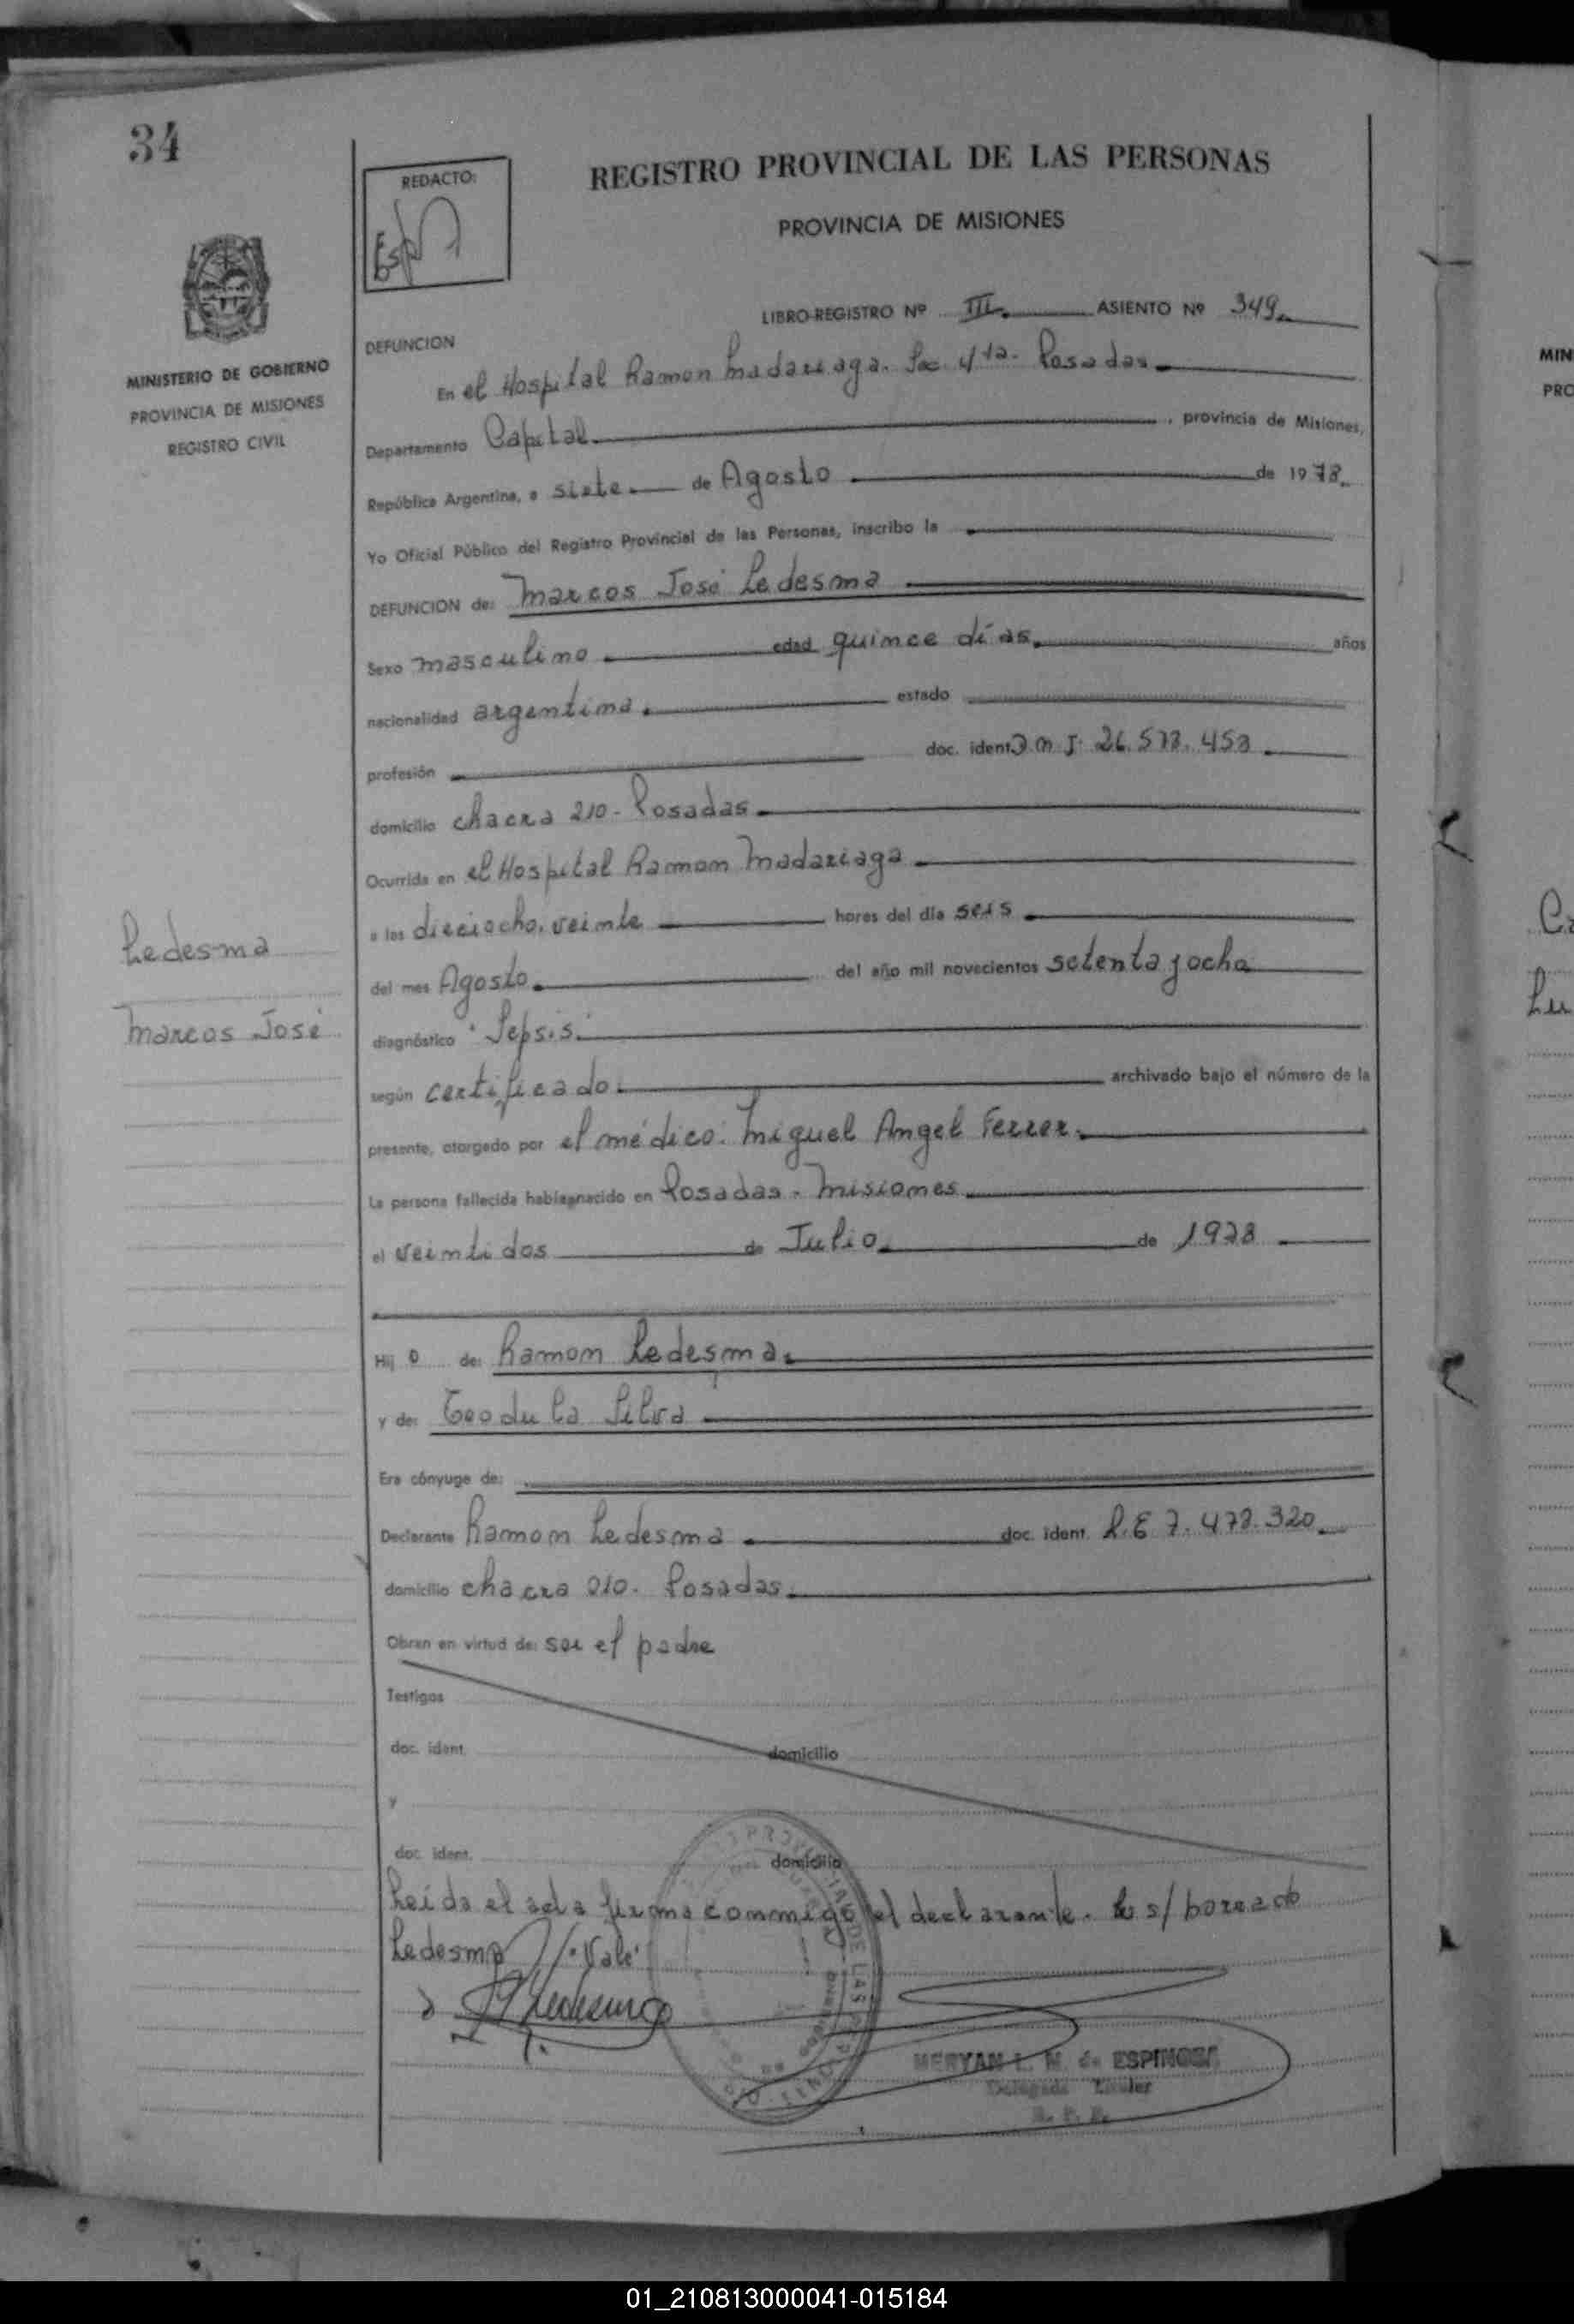 34
REDACTO:
REGISTRO PROVINCIAL DE LAS PERSONAS
PROVINCIA DE MISIONES
MINISTERIO DE GOBIERNO
PROVINCIA DE MISIONES
REGISTRO CIVIL
LIBRO-REGISTRO Nº III. ASIENTO Nº 349
DEFUNCION
En el Hospital Ramon Madariaga. Sec. 4ta. Posadas
Departamento Capital , provincia de Misiones,
República Argentina, a siete de Agosto de 1978.
Yo Oficial Público del Registro Provincial de las Personas, inscribo la
DEFUNCION de: Marcos José Ledesma
Sexo masculino edad quince días. años
nacionalidad argentina. estado
profesión doc. ident.
domicilio chacra 210 - Posadas
Ocurrida en el Hospital Ramon Madariaga
a las dieciocho, veinte horas del día seis
del mes Agosto. del año mil novecientos setenta y ocho
Ledesma
Marcos José
diagnóstico "Sepsis"
según certificado archivado bajo el número de la
presente, otorgado por el médico: Miguel Angel Ferrer.
La persona fallecida había nacido en Posadas - Misiones
el veintidos de Julio. de 1978
Hij o de: Ramon Ledesma.
y de: Teodula Silva
Era cónyuge de:
Declarante Ramon Ledesma doc. ident. L.E 7.478.320
domicilio chacra 210. Posadas.
Obran en virtud de: ser el padre
Testigos
doc. ident. domicilio
y
doc. ident. domicilio
Leida el acta firma conmigo el declarante. s/ borrado
Ledesma Vale
Ledesma
MERYAN L. M. de ESPINOSA
Delegada Titular
R. P. P.
01_210813000041-015184